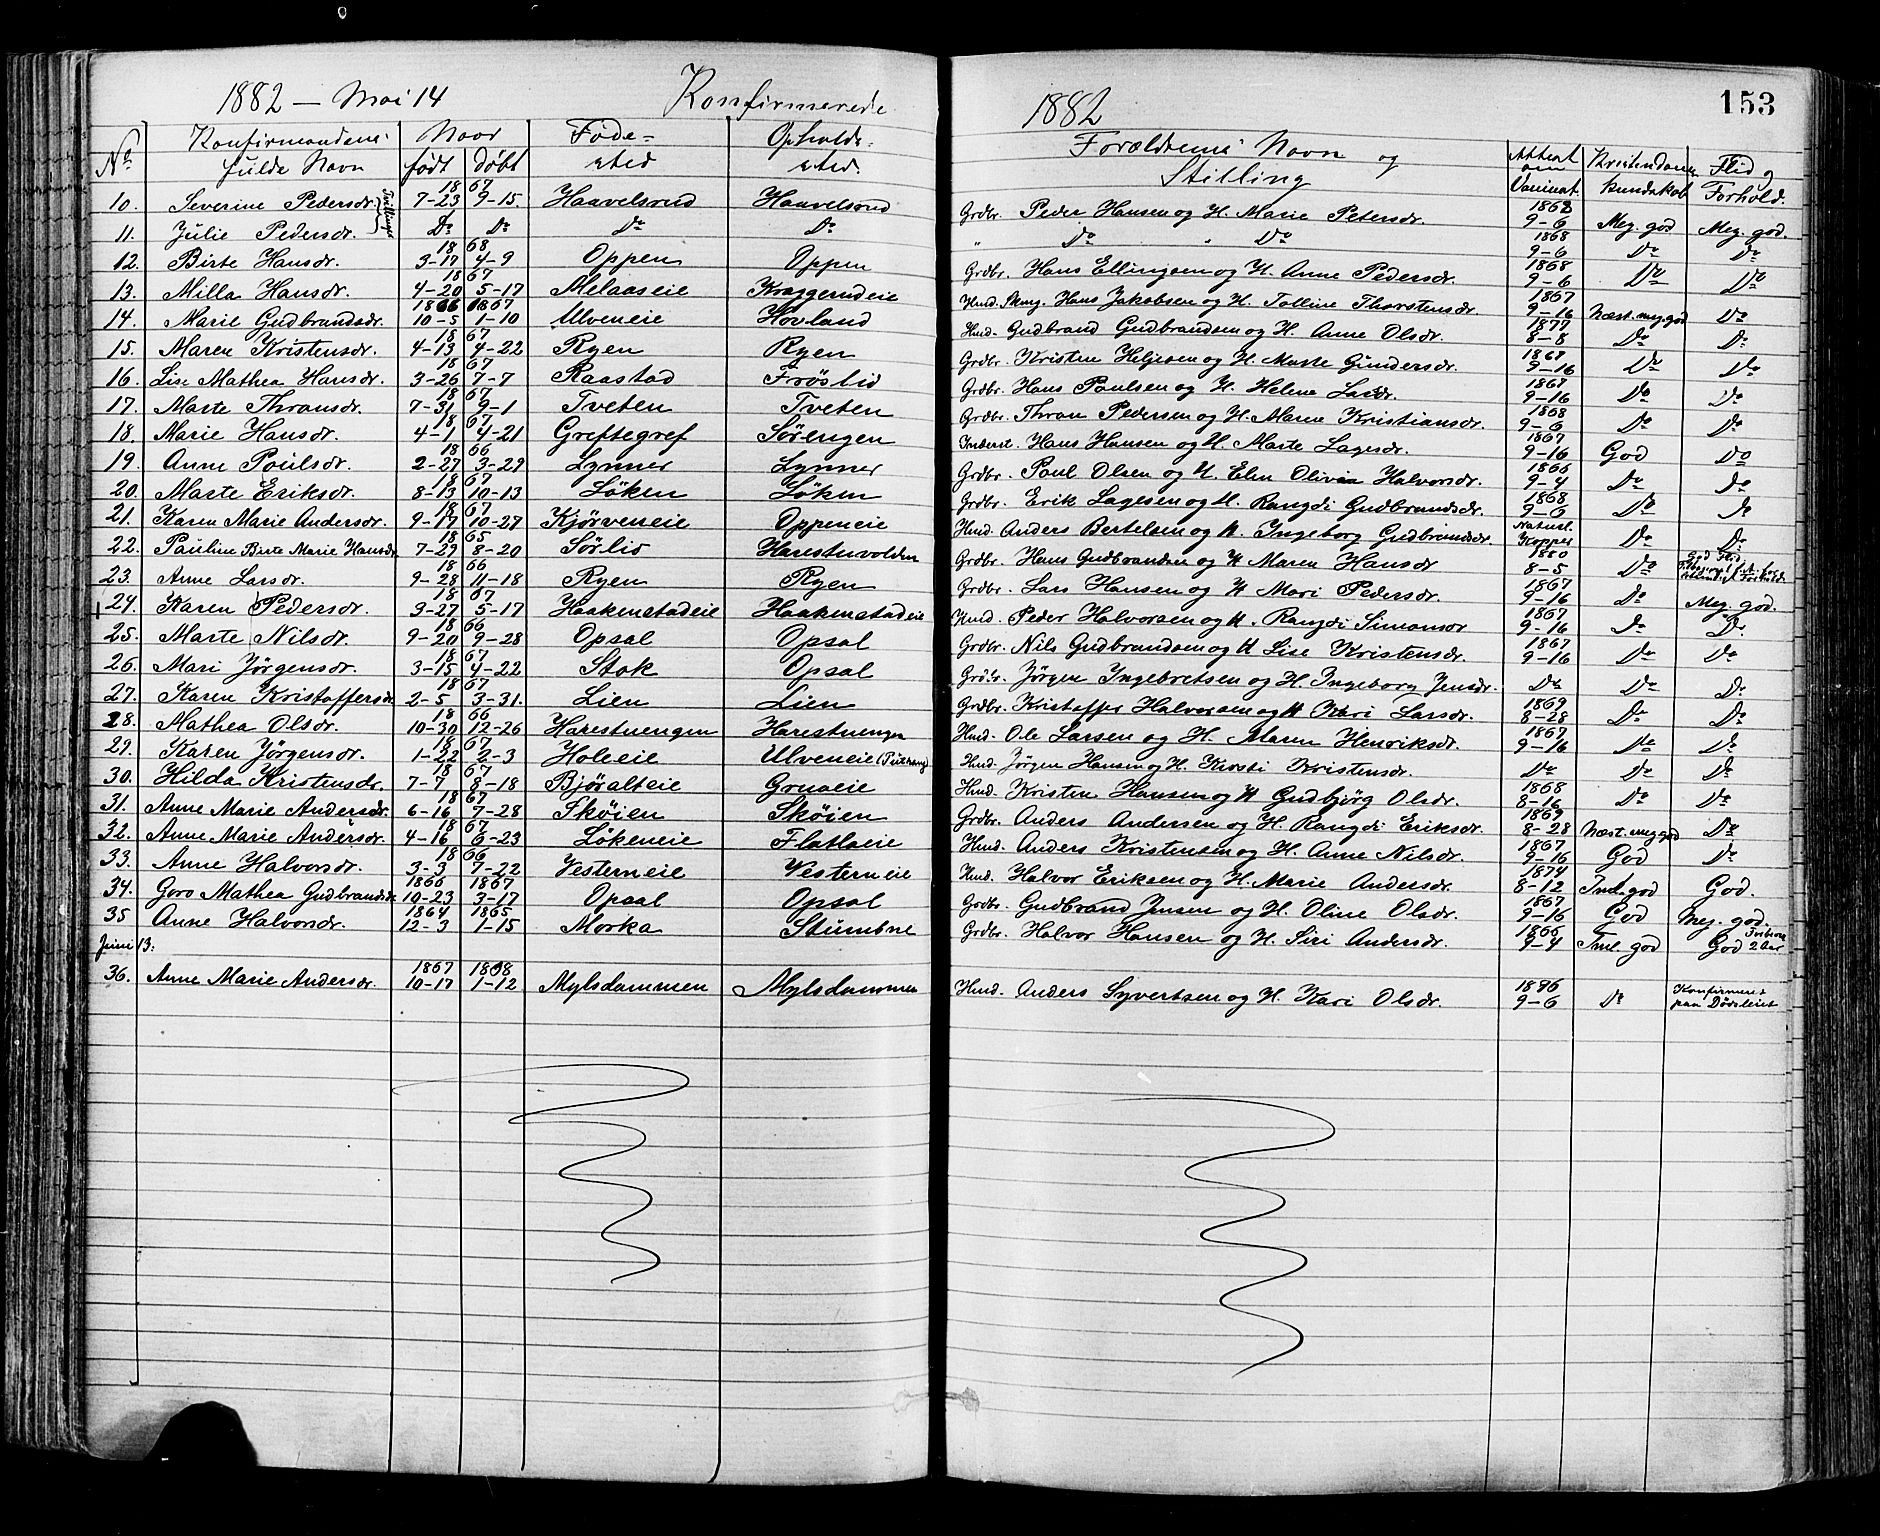 1882 – Mai 14 Konfirmerede 1882 153
No Konfirmandens fulde Navn Naar født døbt Føde-sted Opholds-sted Forældrenes Navn og Stilling Attest om Vaccinat. Kristendoms kundskab Flid og Forhold.
10. Severine Pedersdr. Tvillinger 1867 7-23 9-15. Haavelsrud Haavelsrud Grdbr. Peder Hansen og H. Marie Petersdr. 1868 9-6 Meg. god Meg. god.
11. Julie Pedersdr. Do Do Do Do " Do " Do 1868 9-6 Do Do
12. Birte Hansdr. 1868 3-17 4-9 Oppen Oppen Grdbr. Hans Ellingsen og H. Anne Pedersdr. 1868 9-6 Do Do
13. Milla Hansdr. 1867 4-20 5-17 Melaaseie Kraggerudeie Husd. Skrog. Hans Jakobsen og H. Talline Thorstensdr. 1867 9-16 Næst. meg god Do
14. Marie Gudbrandsdr. 1866 1867 10-5 1-10 Ulveneie Hovland Husd. Gudbrand Gudbrandsen og H. Anne Olsdr. 1877 8-8 Do Do
15. Maren Kristensdr. 1867 4-13 4-22 Ryen Ryen Grdbr. Kristen Heljesen og H. Marte Gundersdr. 1867 9-16 Do Do
16. Lise Mathea Hansdr. 1867 3-26 7-7 Raastad Frøslid Grdbr. Hans Paulsen og H. Helene Larsdr. 1867 9-16 Do Do
17. Marte Thronsdr. 1867 7-31 9-1 Tveten Tveten Grdbr. Thron Pedersen og H. Maren Kristiansdr. 1868 9-6 Do Do
18. Marie Hansdr. 1867 4-1 4-21 Greftegref Sørengen Inderst. Hans Hansen og H. Marte Lagesdr. 1867 9-16 God Do
19. Anne Poulsdr. 1866 2-27 3-29 Lynner Lynner Grdbr. Paul Olsen og H. Elen Olivia Halvorsdr. 1866 9-4 Do Do
20. Marte Eriksdr. 1867 8-13 10-13 Løken Løken Grdbr. Erik Lagesen og H. Rangdi Gudbrandsdr. 1868 9-6 Do Do
21. Karen Marie Andersdr. 1867 9-17 10-27 Kjørveneie Oppeneie Husd. Anders Bertelsen og H. Ingeborg Gudbrandsdr. Naturl. Kopper Do Do
22. Pauline Birte Marie Hansdr. 1865 7-29 8-20 Sørlis Harestuvolden Grdbr. Hans Gudbrandsen og H Maren Hansdr 1880 8-5 Do God Flid
23. Anne Larsdr. 1866 9-28 11-18 Ryen Ryen Grdbr. Lars Hansen og H Mari Pedersdr. 1867 9-16 Do Meg. god.
24. Karen Pedersdr. 1867 3-27 5-17 Haakenstadeie Haakenstadeie Husd. Peder Halvorsen og H. Rangdi Simonsdr 1867 9-16 Do Do
25. Marte Nilsdr. 1866 9-20 9-28 Opsal Opsal Grdbr. Nils Gudbrandsen og H Lise Kristensdr. 1867 9-16 Do Do
26. Mari Jørgensdr. 1867 3-15 4-22 Stok Opsal Grdbr. Jørgen Ingebretsen og H. Ingeborg Jensdr. Do Do Do
27. Karen Kristoffersdr 1867 2-5 3-31. Lien Lien Grdbr. Kristoffer Halvorsen og H Kari Larsdr. 1869 8-28 Do Do
28. Mathea Olsdr. 1866 10-30 12-26 Harestuengen Harestuengen Husd. Ole Larsen og H. Maren Henriksdr. 1867 9-16 Do Do
29. Karen Jørgensdr. 1867 1-22 2-3 Holeeie Ulveneie Husd. Jørgen Hansen og H. Kirsti Kristensdr. Do Do Do
30. Hilda Kristensdr. 1867 7-7 8-18 Bjøralteie Gruaeie Husd. Kristen Hansen og H Gudbjørg Olsdr. 1868 8-16 Do Do
31. Anne Marie Andersdr. 1867 6-16 7-28 Skøien Skøien Grdbr. Anders Andersen og H. Rangdi Eriksdr. 1869 8-28 Næst. meg god Do
32. Anne Marie Andersdr. 1867 4-16 6-23 Løkeneie Flatlaeie Husd. Anders Kristensen og H. Anne Nilsdr. 1867 9-16 God Do
33. Anne Halvorsdr. 1866 3-3 7-22 Vesterneie Vesterneie Husd. Halvor Eriksen og H. Marie Andersdr. 1874 8-12 Tml. god God.
34. Goro Mathea Gudbrandsdr 1866 1867 10-23 3-17 Opsal Opsal Grdbr. Gudbrand Jensen og H. Oline Olsdr. 1867 9-16 God Meg. god.
35 Anne Halvorsdr. 1864 1865 12-3 1-15 Morka Stumbne Grdbr. Halvor Hansen og H. Siri Andersdr. 1866 9-4 Tml. god God 2 Aar
Juni 13:
36. Anne Marie Andersdr. 1867 1868 10-17 1-12 Mylsdammen Mylsdammen Husd. Anders Syvertsen og H. Kari Olsdr. 9-6 Do Konfirmeret paa Dødsleiet